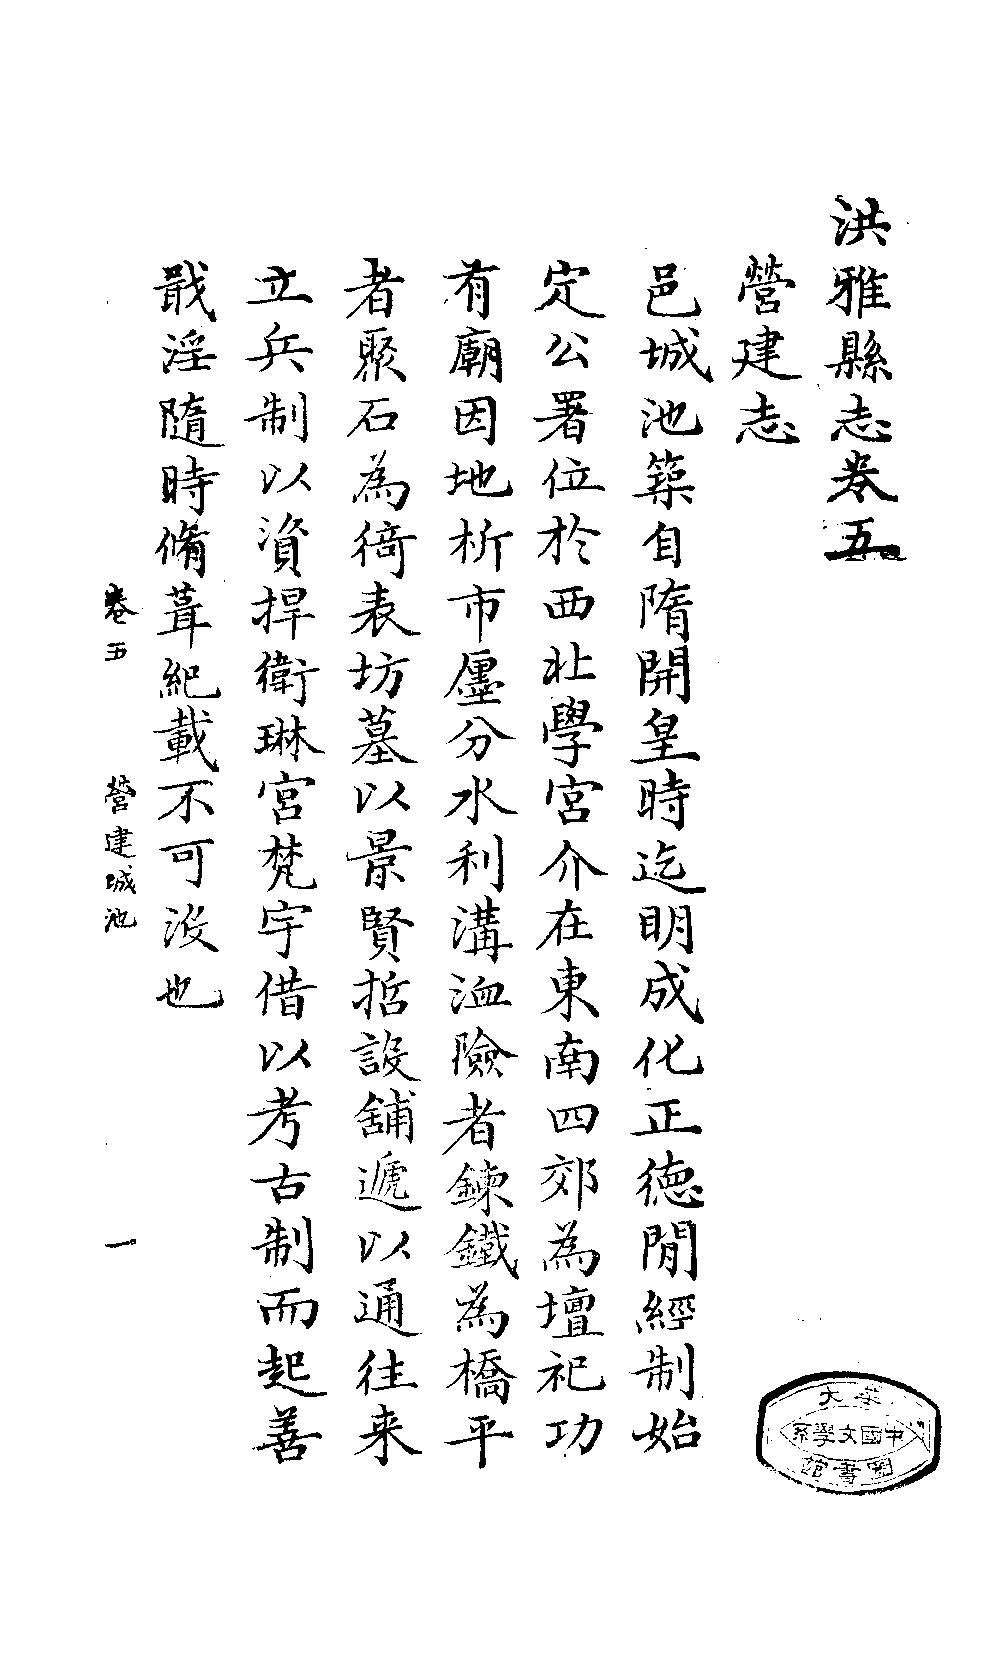 洪雅縣志卷五
營建志
邑城池築自隋開皇時迄明成化正德閒經制始
定公署位於西北學宮介在東南四郊為壇祀功
有廟因地析市廛分水利溝洫險者鍊鐵為橋平
者聚石為徛表坊墓以景賢哲設舖遞以通往来
立兵制以資捍衛琳宮梵宇借以考古制而起善
戢淫隨時脩葺紀載不可没也
卷五 營建城池 一
中國文學系
圖書館